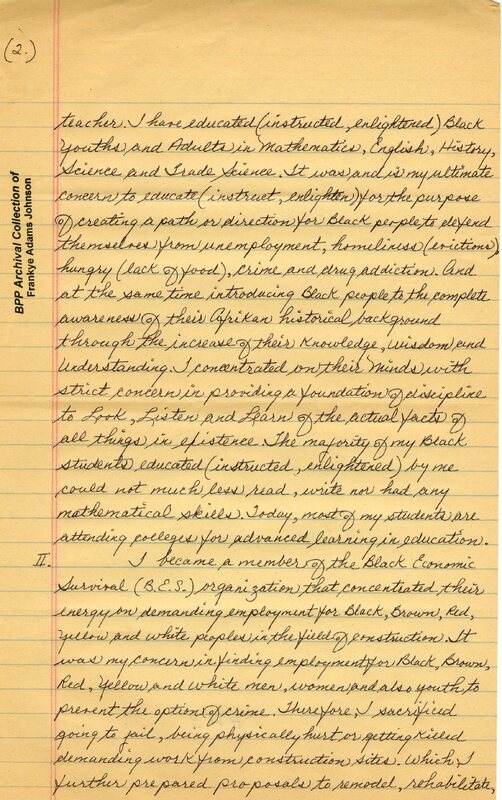 (2.)
BPP Archival Collection of
Frankye Adams Johnson
teacher. I have educated (instructed, enlightened) Black
Youths and Adults in Mathematics, English, History,
Science and Trade Science. It was and is my ultimate
concern to educate (instruct, enlighten) for the purpose
of creating a path or direction for Black people to defend
themselves from unemployment, homeliness (evictions),
hungry (lack of food), crime and drug addiction. And
at the same time introducing Black people to the complete
awareness of their Afrikan historical background
through the increase of their Knowledge, Wisdom and
Understanding. I concentrated on their Minds with
strict concern in providing a foundation of discipline
to Look, Listen and Learn of the actual facts of
all things in existence. The majority of my Black
students educated (instructed, enlightened) by me
could not much less read, write nor had any
mathematical skills. Today, most of my students are
attending colleges for advanced learning in education.
II. I became a member of the Black Economic
Survival (B.E.S.) organization that concentrated their
energy on demanding employment for Black, Brown, Red,
Yellow and white peoples in the field of construction. It
was my concern in finding employment for Black, Brown,
Red, Yellow and white men, women and also youth to
prevent the option of crime. Therefore, I sacrificed
going to jail, being physically hurt or getting killed
demanding work from construction sites. Which I
further prepared proposals to remodel, rehabilitate,